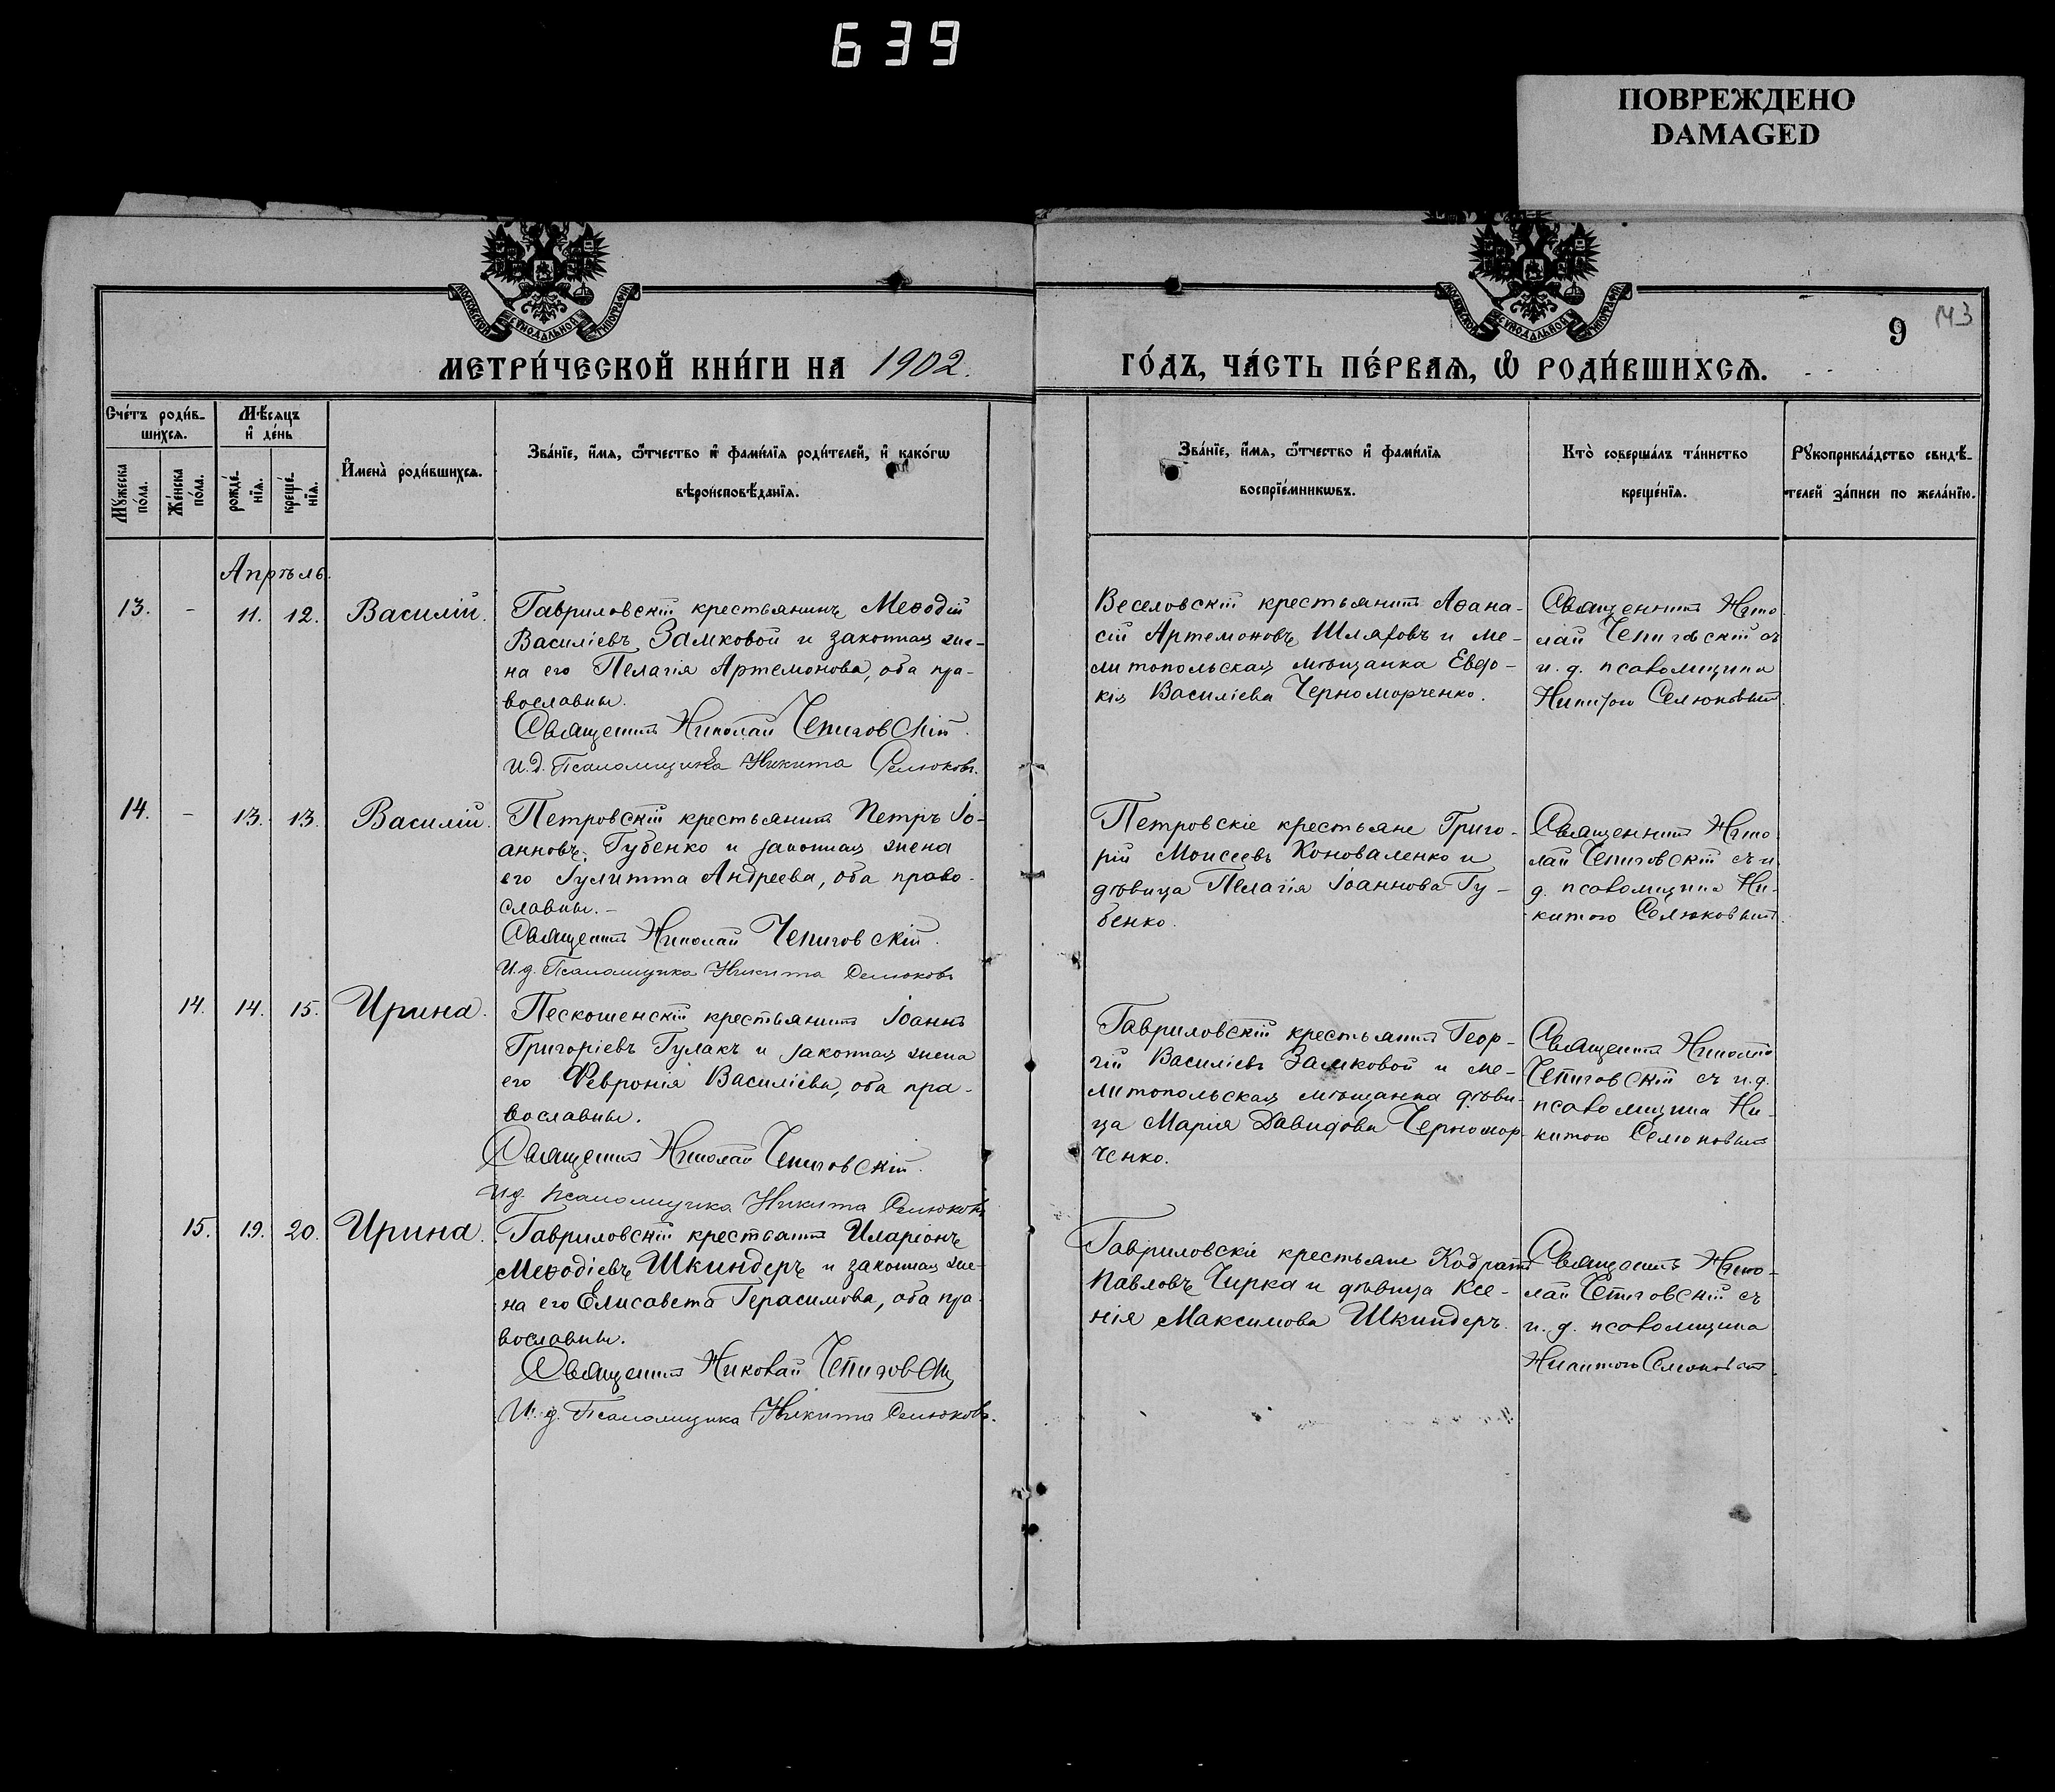 639
ПОВРЕЖДЕНО
DAMAGED
МОСКОВСКОЙ СѴНОДАЛЬНОЙ ТИПОГРАФІИ
МОСКОВСКОЙ СѴНОДАЛЬНОЙ ТИПОГРАФІИ
9
143
МЕТРИ́ЧЕСКОЙ КНИ́ГИ НА 1902.
ГО́ДЪ, ЧА́СТЬ ПЕ́РВАѦ, Ѽ РОДИ́ВШИХСѦ.
Сче́тъ роди́в-
шихсѧ.
Мѣ́сѧцъ
и҆ де́нь
Мꙋ́жеска
по́ла.
Же́нска
по́ла.
рожде́-
нїѧ.
креще́-
нїѧ.
И҆мена̀ роди́вшихсѧ.
Зва́нїе, и҆́мѧ, ѻ҆́тчество и҆ фами́лїѧ роди́телей, и҆ како́гѡ
вѣроисповѣ́данїѧ.
Зва́нїе, и҆́мѧ, ѻ҆́тчество и҆ фами́лїѧ
воспрїе́мникѡвъ.
Кто̀ соверша́лъ та́инство
креще́нїѧ.
Рꙋкоприкла́дство свидѣ́-
телей за́писи по жела́нїю.
Апрѣль.
13. - 11. 12. Василій.
Гавриловскій крестьянинъ Меѳодій
Василіевъ Замковой и законная же-
на его Пелагія Артемонова, оба пра-
вославны.
Священникъ Николай Чепиговскій.
И.д. Псаломщика Никита Селюковъ.
Веселовскій крестьянинъ Аѳана-
сій Артемоновъ Шляховъ и ме-
литопольская мѣщанка Евдо-
кія Василіева Черноморченко.
Священникъ Нико-
лай Чепиговскій съ
и. д. псаломщика
Никитою Селюковымъ.
14. - 13. 13. Василій.
Петровскій крестьянинъ Петръ Іо-
анновъ Губенко и законная жена
его Іулитта Андреева, оба право-
славны. -
Священникъ Николай Чепиговскій.
И.д. Псаломщика Никита Селюковъ
Петровскіе крестьяне Григо-
рій Моисеевъ Коноваленко и
дѣвица Пелагія Іоаннова Гу-
бенко.
Священникъ Нико-
лай Чепиговскій съ и.
д. псаломщика Ни-
китою Селюковымъ.
14. 14. 15. Ирина.
Пескошенскій крестьянинъ Іоаннъ
Григоріевъ Гулакъ и законная жена
его Февронія Василіева, оба пра-
вославны.
Священникъ Николай Чепиговскій.
И.д. псаломщика Никита Селюковъ
Гавриловскій крестьянинъ Геор-
гій Василіевъ Замковой и ме-
литопольская мѣщанка дѣви-
ца Марія Давидова Черномор-
ченко.
Священникъ Николай
Чепиговскій съ и.д.
псаломщика Ни-
китою Селюковымъ
15. 19. 20. Ирина.
Гавриловскій крестьянинъ Иларіонъ
Меѳодіевъ Шкиндеръ и законная же-
на его Елисавета Герасимова, оба пра-
вославны.
Священникъ Николай Чепиговскій
И.д. Псаломщика Никита Селюковъ.
Гавриловскіе крестьяне Кодратъ
Павловъ Чирка и дѣвица Ксе-
нія Максимова Шкиндеръ.
Священникъ Нико-
лай Чепиговскій съ
и. д. псаломщика
Никитою Селюковымъ.